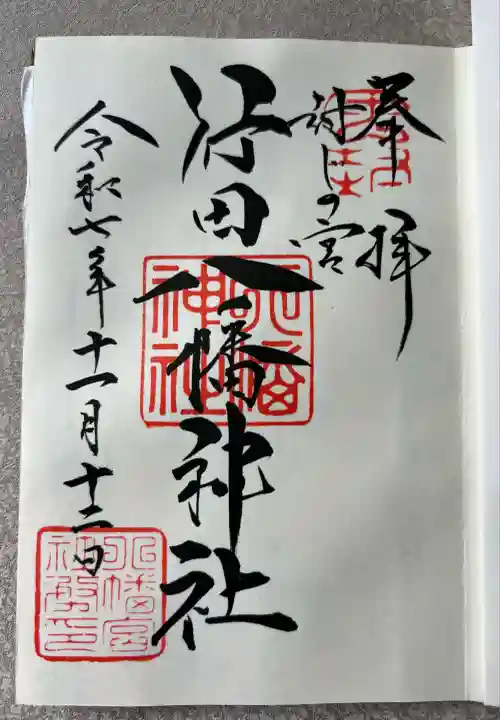 奉拝
封じの宮
行田八幡神社
八幡
神社
令和七年十一月十二日
八幡宮